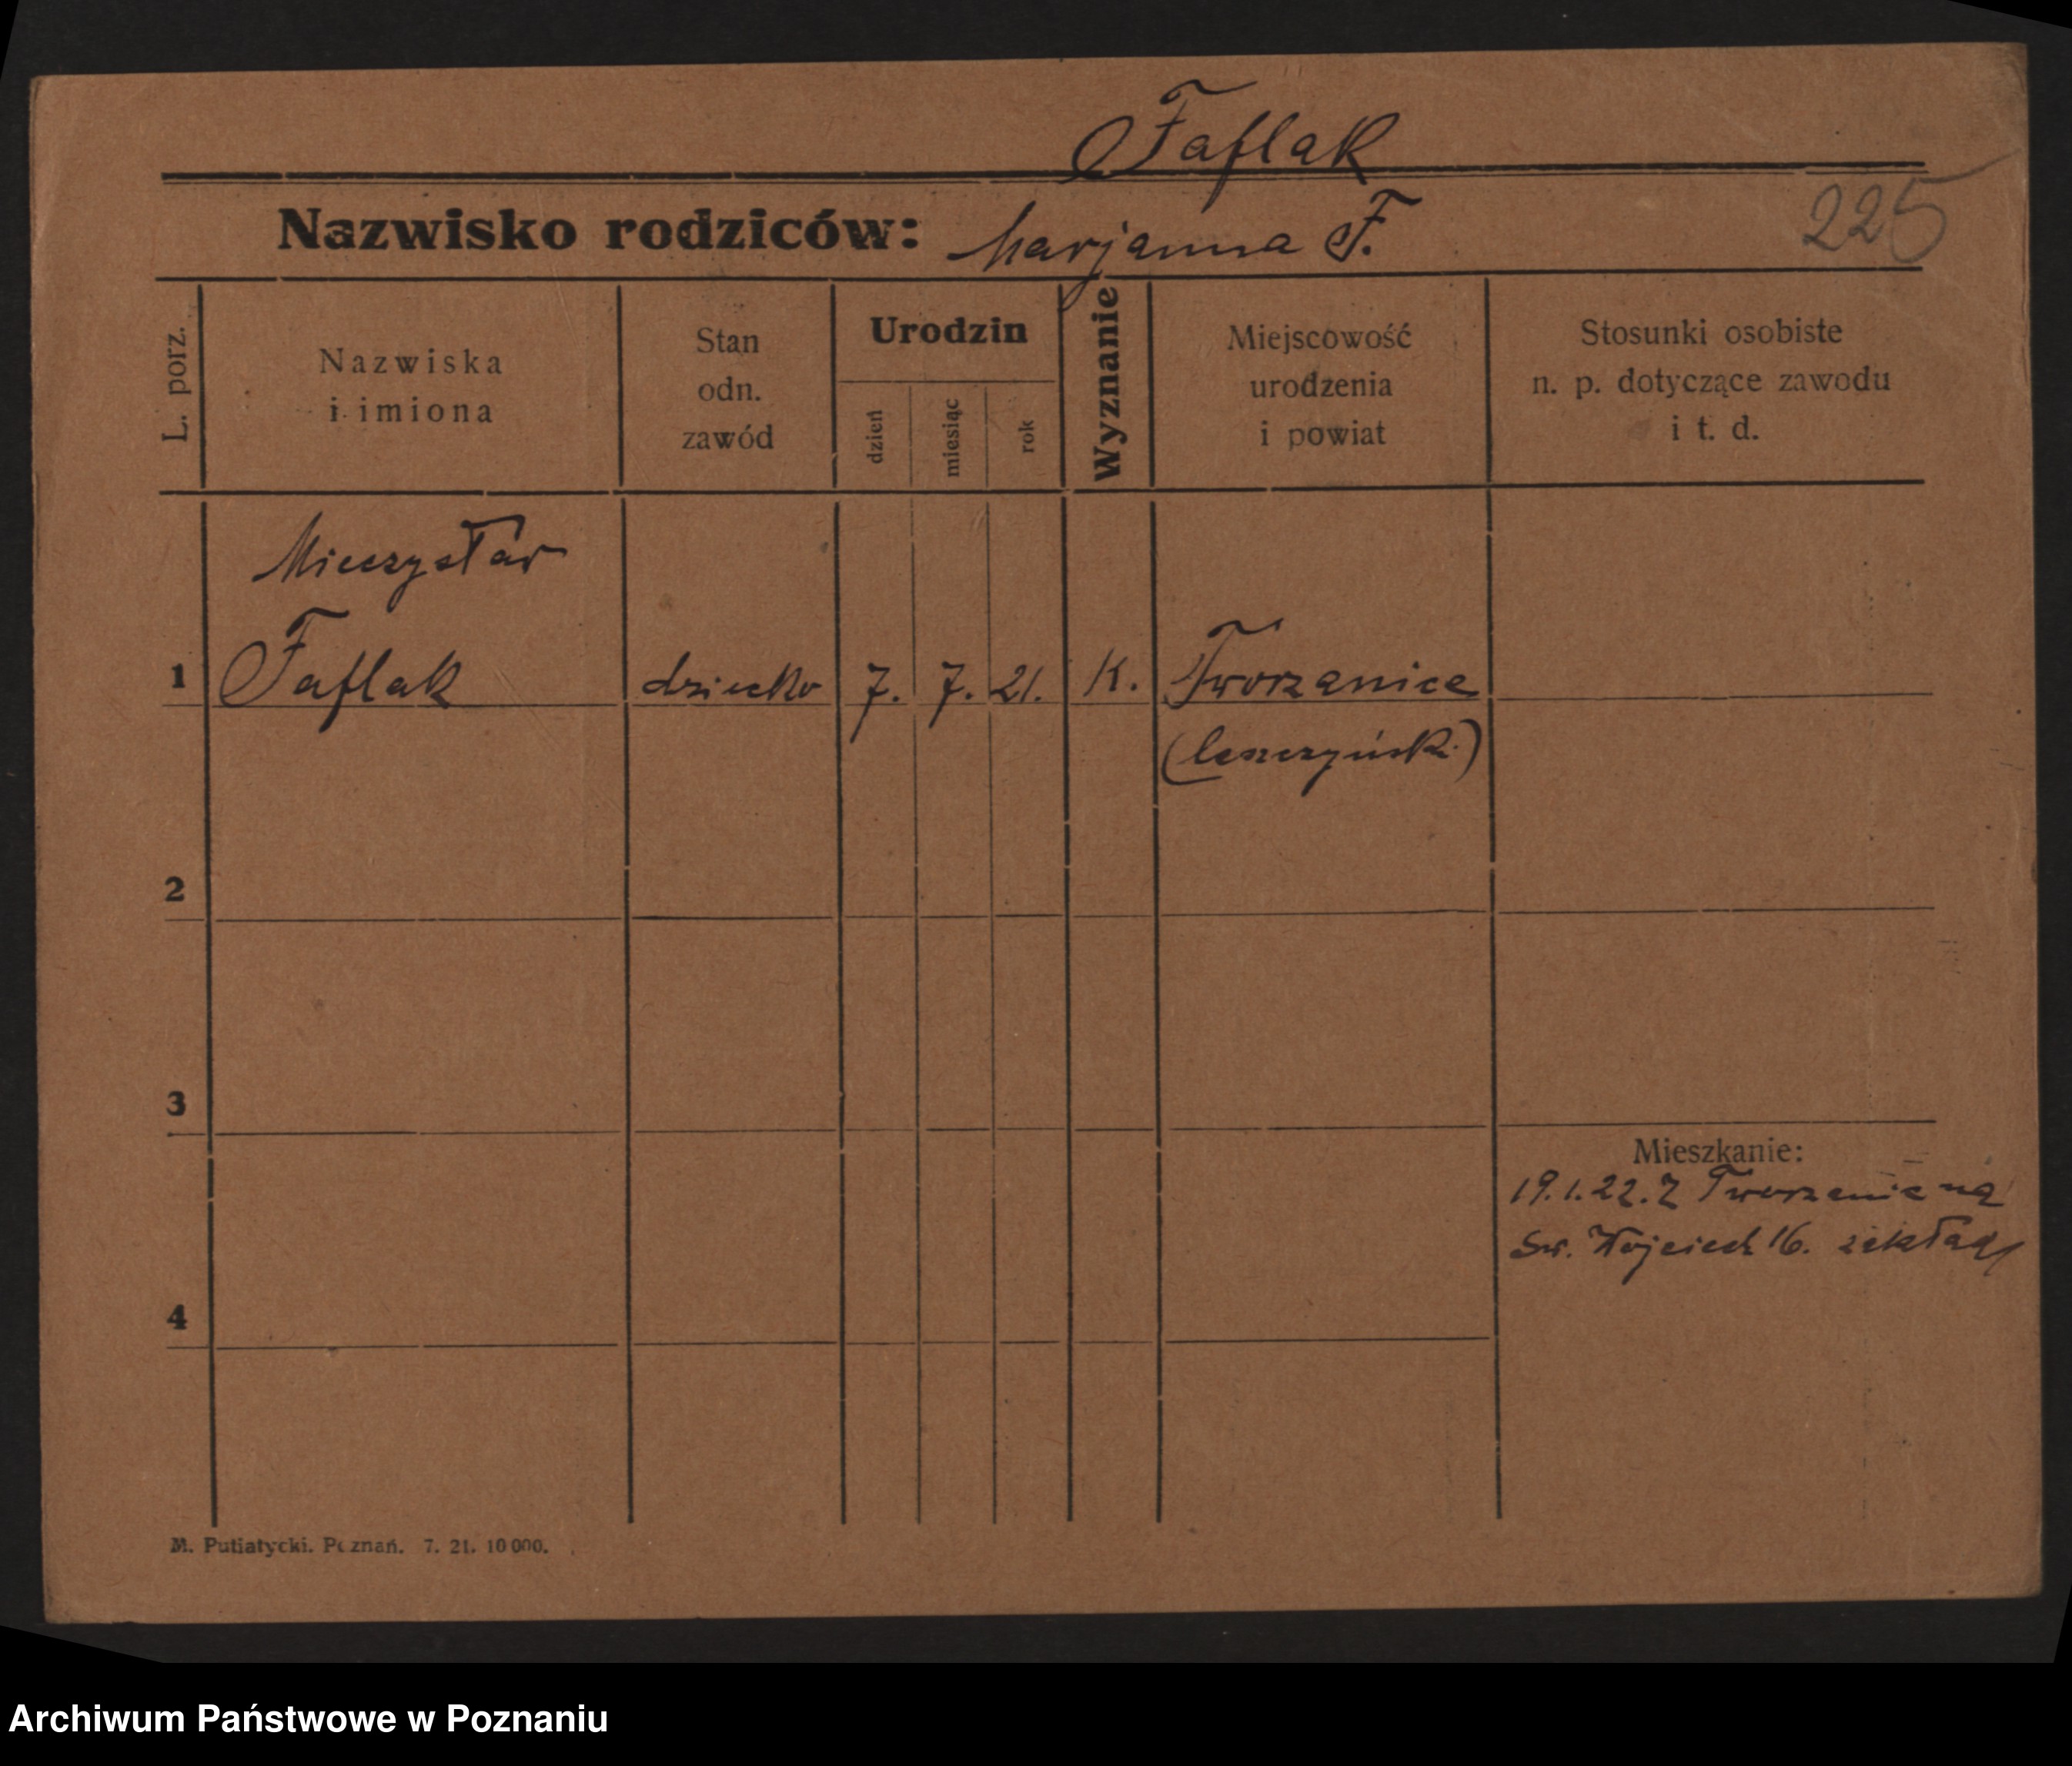 Faflak
Nazwisko rodziców: Marjanna F.
225
L. porz.
Nazwiska
i imiona
Stan
odn.
zawód
Urodzin
dzień
miesiąc
rok
Wyznanie
Miejscowość
urodzenia
i powiat
Stosunki osobiste
n. p. dotyczące zawodu
i t. d.
Mieczysław
1 Faflak dziecko 7. 7. 21. K. Tworzanice
(leszczyńsk.)
2
3
Mieszkanie:
19.1.22. Z Tworzanic na
Św. Wojciech 16.
4
M. Putiatycki. Poznań. 7. 21. 10 000.
Archiwum Państwowe w Poznaniu